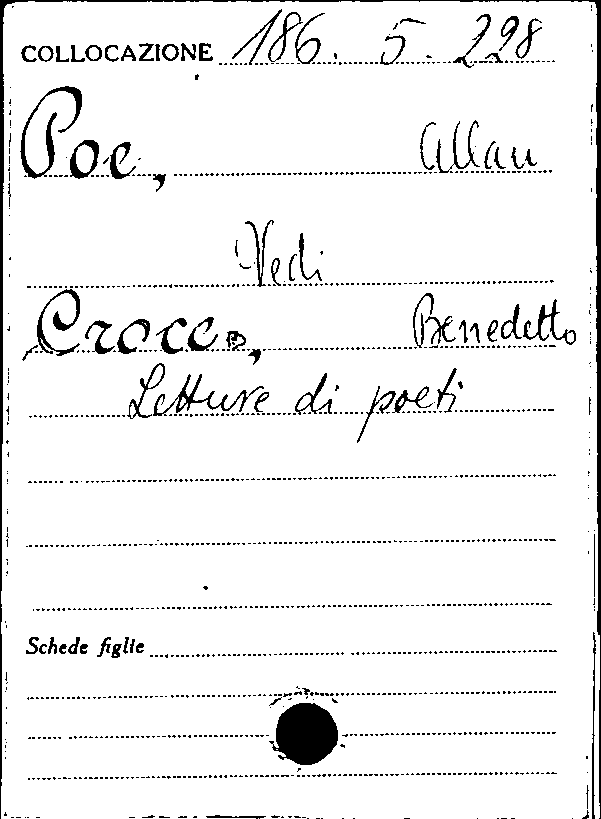 COLLOCAZIONE 186. 5. 298
Poe, Allan
Vedi
Croce, Benedetto
Letture di poeti
Schede figlie